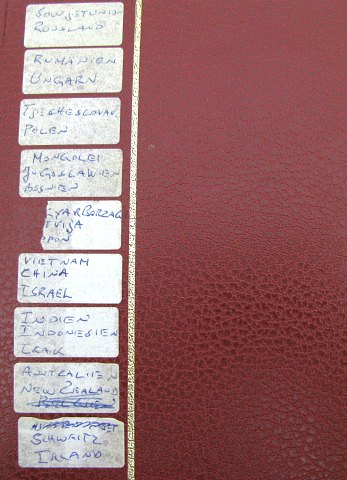 SOWJETUNION
RUSSLAND
RUMÄNIEN
UNGARN
TJECHESLOVAK
POLEN
MONGOLEI
JUGOSLAWIEN
BOSNIEN
VIETNAM
CHINA
ISRAEL
INDIEN
INDONESIEN
IRAK
AUSTRALIEN
NEW ZEALAND
SCHWEITZ
IRLAND